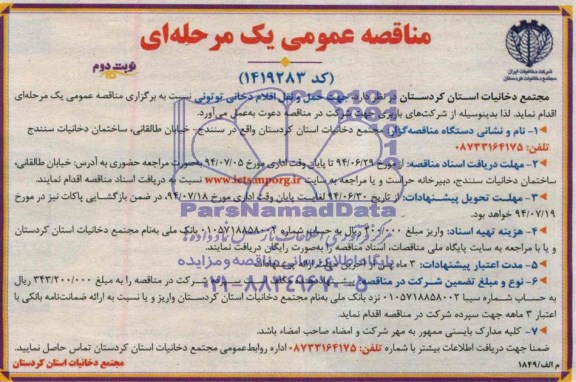 مناقصه عمومی یک مرحله‌ای
شرکت دخانیات ایران
مجتمع دخانیات کردستان
نوبت دوم
(کد ۱۴۱۹۲۸۳)
مجتمع دخانیات استان کردستان در نظر دارد، جهت حمل و نقل اقلام دخانی توتونی نسبت به برگزاری مناقصه عمومی یک مرحله‌ای
اقدام نماید. لذا بدینوسیله از شرکت‌های باربری جهت شرکت در مناقصه دعوت به‌عمل می‌آورد.
۱- نام و نشانی دستگاه مناقصه‌گزار: مجتمع دخانیات استان کردستان واقع در سنندج، خیابان طالقانی، ساختمان دخانیات سنندج
تلفن: ۰۸۷۳۳۱۶۴۱۷۵
۲- مهلت دریافت اسناد مناقصه: از مورخ ۹۴/۰۶/۲۹ تا پایان وقت اداری مورخ ۹۴/۰۷/۰۵ به‌صورت مراجعه حضوری به آدرس: خیابان طالقانی،
ساختمان دخانیات سنندج، دبیرخانه حراست و یا مراجعه به سایت www.iets.mporg.ir نسبت به دریافت اسناد مناقصه اقدام نمایند.
۳- مهلت تحویل پیشنهادات: از تاریخ ۹۴/۰۶/۳۰ لغایت پایان وقت اداری مورخ ۹۴/۰۷/۱۸، در ضمن بازگشایی پاکات نیز در مورخ
۹۴/۰۷/۱۹ خواهد بود.
۴- هزینه تهیه اسناد: واریز مبلغ ریال به حساب شماره بانک ملی به‌نام مجتمع دخانیات استان کردستان
و یا با مراجعه به سایت پایگاه ملی مناقصات، اسناد مناقصه را به‌صورت رایگان دریافت نمایند.
۵- مدت اعتبار پیشنهادات: ۳ ماه
۶- نوع و مبلغ تضمین شرکت در مناقصه: شرکت در مناقصه را به مبلغ ۳۴۳/۲۰۰/۰۰۰ ریال
به حساب شماره سیبا ۰۱۰۵۷۱۸۸۵۸۰۰۲ نزد بانک ملی به‌نام مجتمع دخانیات استان کردستان واریز و یا نسبت به ارائه ضمانت‌نامه بانکی با
اعتبار ۳ ماهه جهت سپرده شرکت در مناقصه اقدام نماید.
۷- کلیه مدارک بایستی ممهور به مهر شرکت و امضاء صاحب امضاء باشد.
ضمنا جهت دریافت اطلاعات بیشتر با شماره تلفن: ۰۸۷۳۳۱۶۴۱۷۵ اداره روابط‌عمومی مجتمع دخانیات استان کردستان تماس حاصل نمایید.
م الف/۱۸۴۹
مجتمع دخانیات استان کردستان
ParsNamadData
پایگاه اطلاع رسانی مناقصه و مزایده
۰۲۱-۸۸۳۴۹۶۷۰-۵